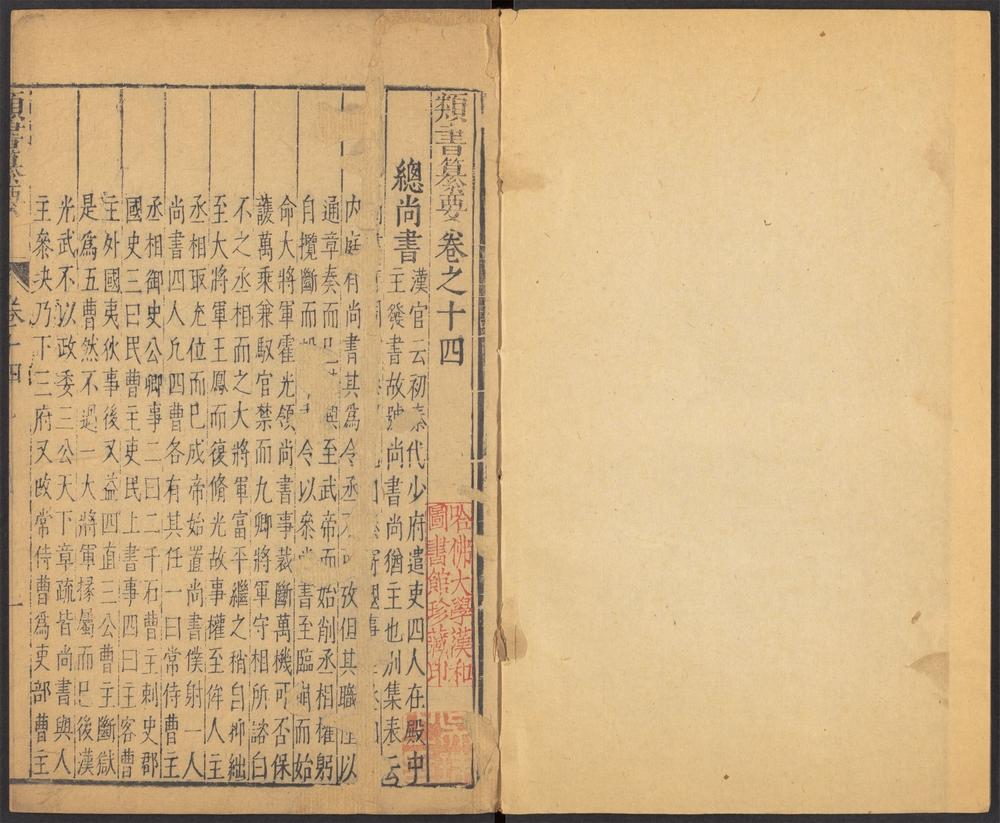 類書纂要卷之十四
總尚書
漢官云初秦代少府遣吏四人在殿中
主發書故號尚書尚猶主也別集表云
内庭有尚書其爲令丞不可攷但其職以
通章奏而已與至武帝而始削丞相權躬
自攬斷而令以衆尚書至臨崩而始
命大將軍霍光領尚書事裁斷萬機可否保
護萬乘兼馭官禁而九卿將軍守相所諮白
不之丞相而之大將軍富平繼之稍自抑絀
至大將軍王鳳而復脩光故事權至侔人主
丞相取充位而已成帝始置尚書僕射一人
尚書四人凡四曹各有其任一曰常侍曹主
丞相御史公卿事二曰二千石曹主刺史郡
國史三曰民曹主吏民上書事四曰主客曹
主外國夷狄事後又益四直三公曹主斷獄
是爲五曹然不過一大將軍掾屬而已後漢
光武不以政委三公天下章疏皆尚書與人
主叅决乃下三府又改常侍曹爲吏部曹主
類書纂要
卷十四
一
哈佛大學漢和
圖書館珍藏印